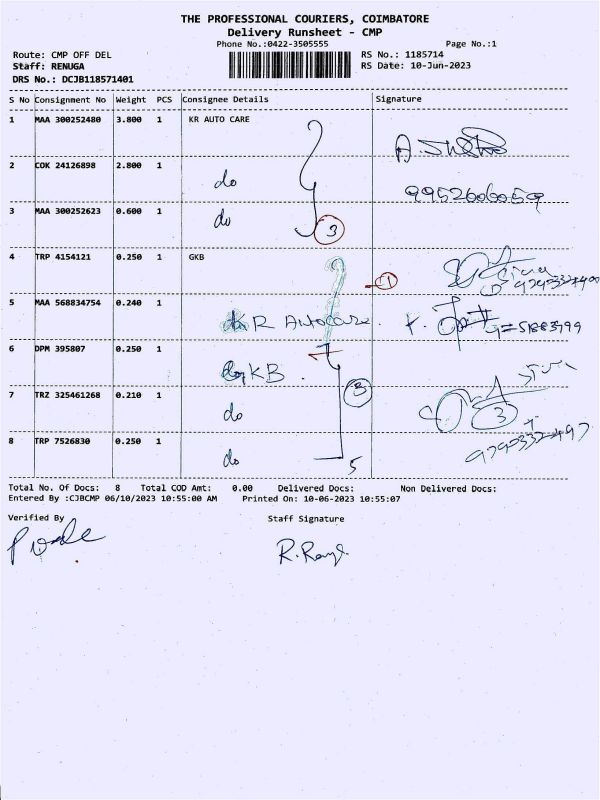 THE PROFESSIONAL COURIERS, COIMBATORE
Delivery Runsheet - CMP
Phone No.:0422-3505555 Page No.:1
Route: CMP OFF DEL RS No.: 1185714
Staff: RENUGA RS Date: 10-Jun-2023
DRS No.: DCJB118571401
S No Consignment No Weight PCS Consignee Details Signature
1 MAA 300252480 3.800 1 KR AUTO CARE
2 COK 24126898 2.800 1 do 9952606059
3 MAA 300252623 0.600 1 do 3
4 TRP 4154121 0.250 1 GKB 1
5 MAA 568834754 0.240 1 KR Autocare.
6 DPM 395807 0.250 1 GKB. 3
7 TRZ 325461268 0.210 1 do 3
8 TRP 7526830 0.250 1 do 5
Total No. Of Docs: 8 Total COD Amt: 0.00 Delivered Docs: Non Delivered Docs:
Entered By :CJBCMP 06/10/2023 10:55:00 AM Printed On: 10-06-2023 10:55:07
Verified By Staff Signature